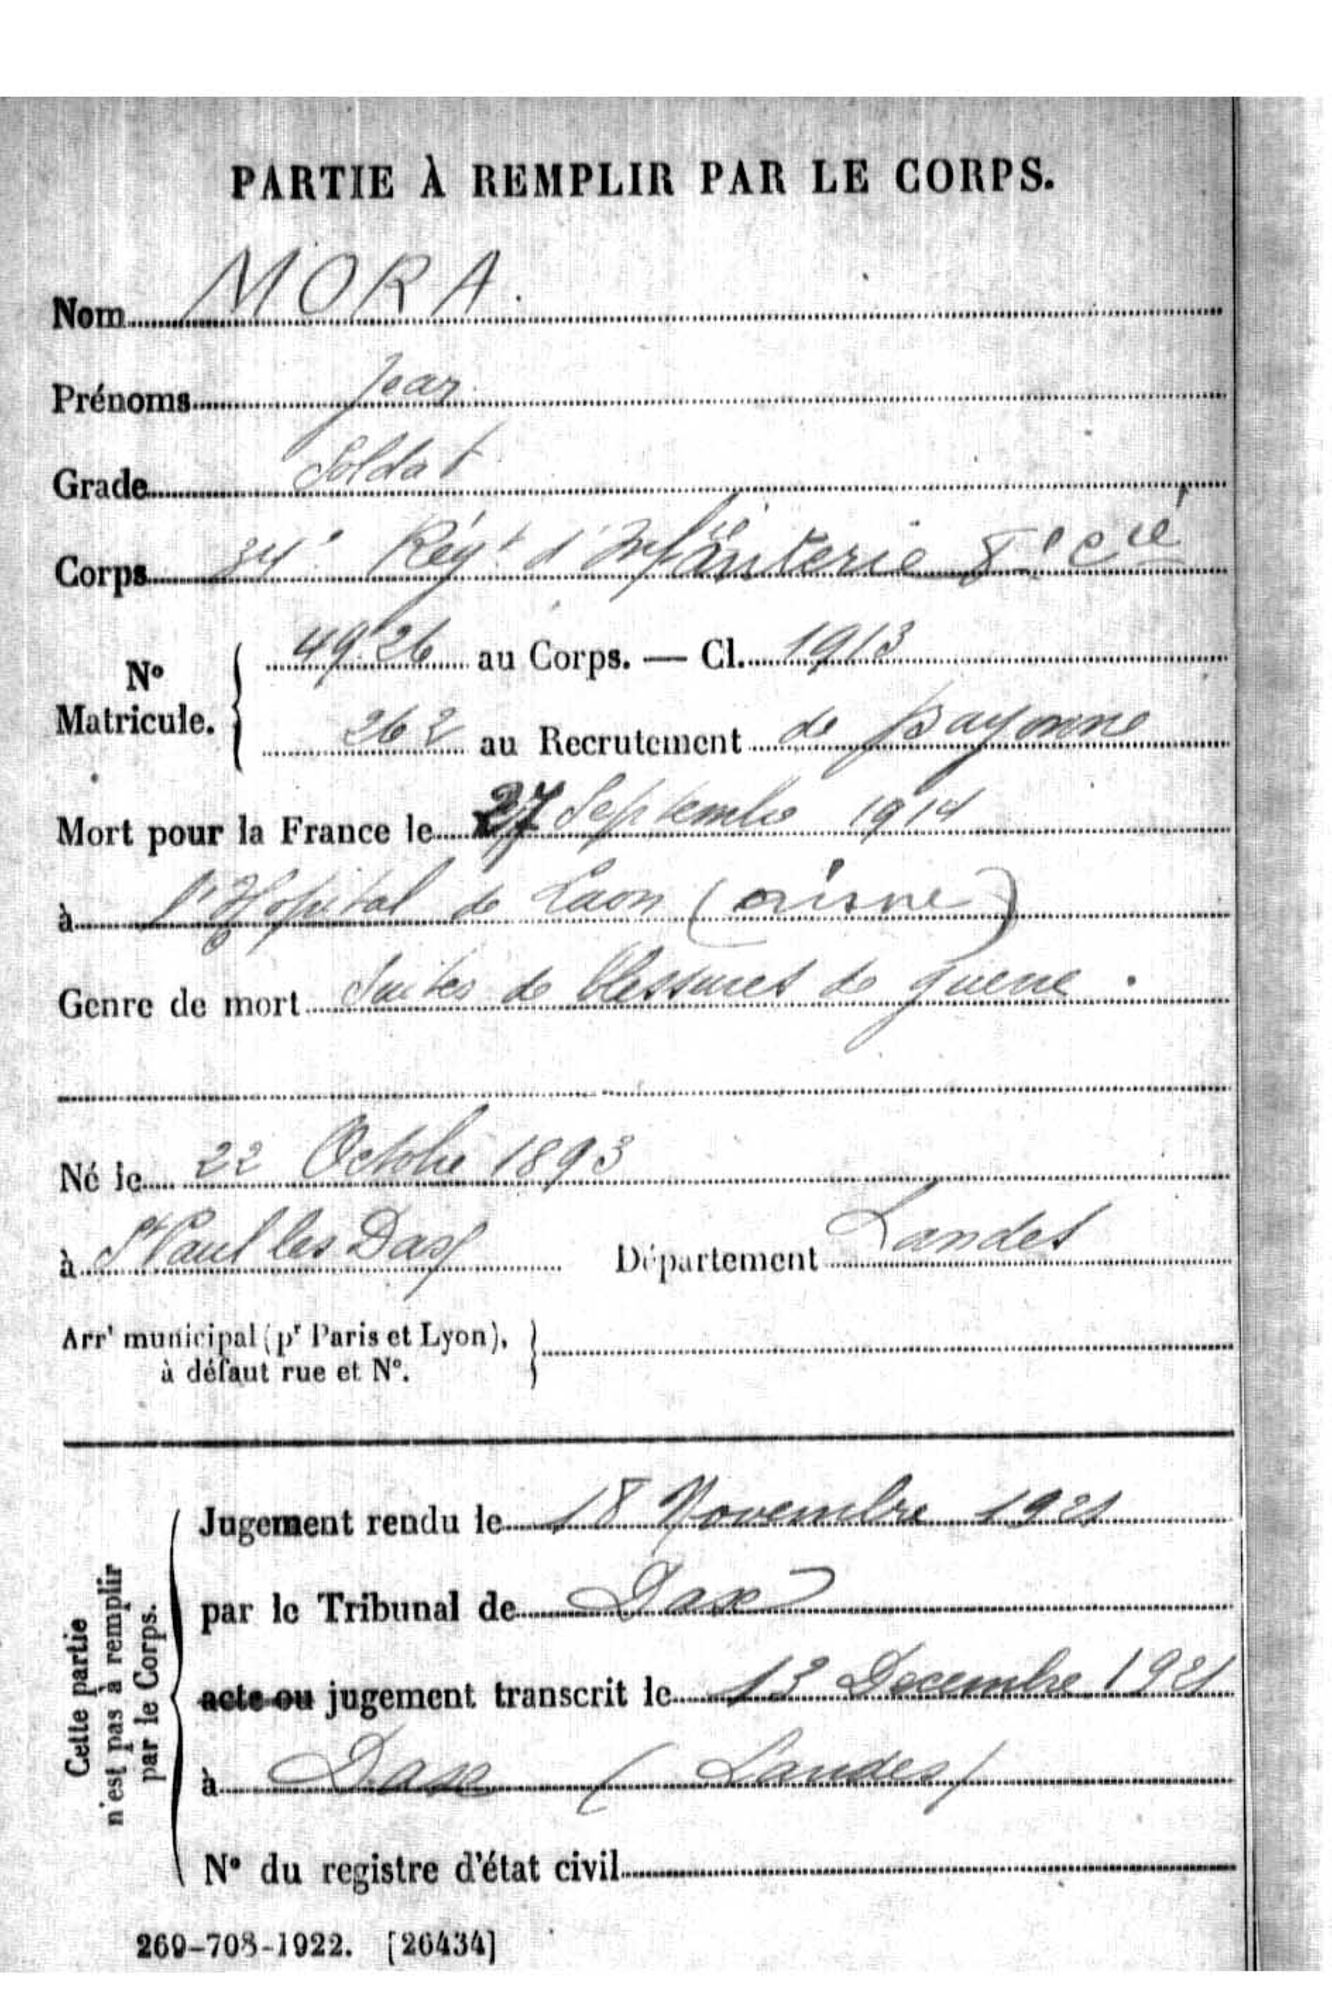 PARTIE À REMPLIR PAR LE CORPS.
Nom MORA
Prénoms Jean
Grade Soldat
Corps 34e Régt d'Infanterie 8e Cie
No Matricule. { 4926 au Corps. — Cl. 1913
262 au Recrutement de Bayonne
Mort pour la France le 27 Septembre 1914
à l'Hopital de Laon (Aisne)
Genre de mort Suites de blessures de guerre.
Né le 22 Octobre 1893
à St Paul les Dax Département Landes
Arrt municipal (pr Paris et Lyon), }
à défaut rue et No.
Cette partie n'est pas à remplir par le Corps.
Jugement rendu le 18 Novembre 1921
par le Tribunal de Dax
acte ou jugement transcrit le 13 Decembre 1921
à Dax (Landes)
No du registre d'état civil
269-708-1922. [26434]